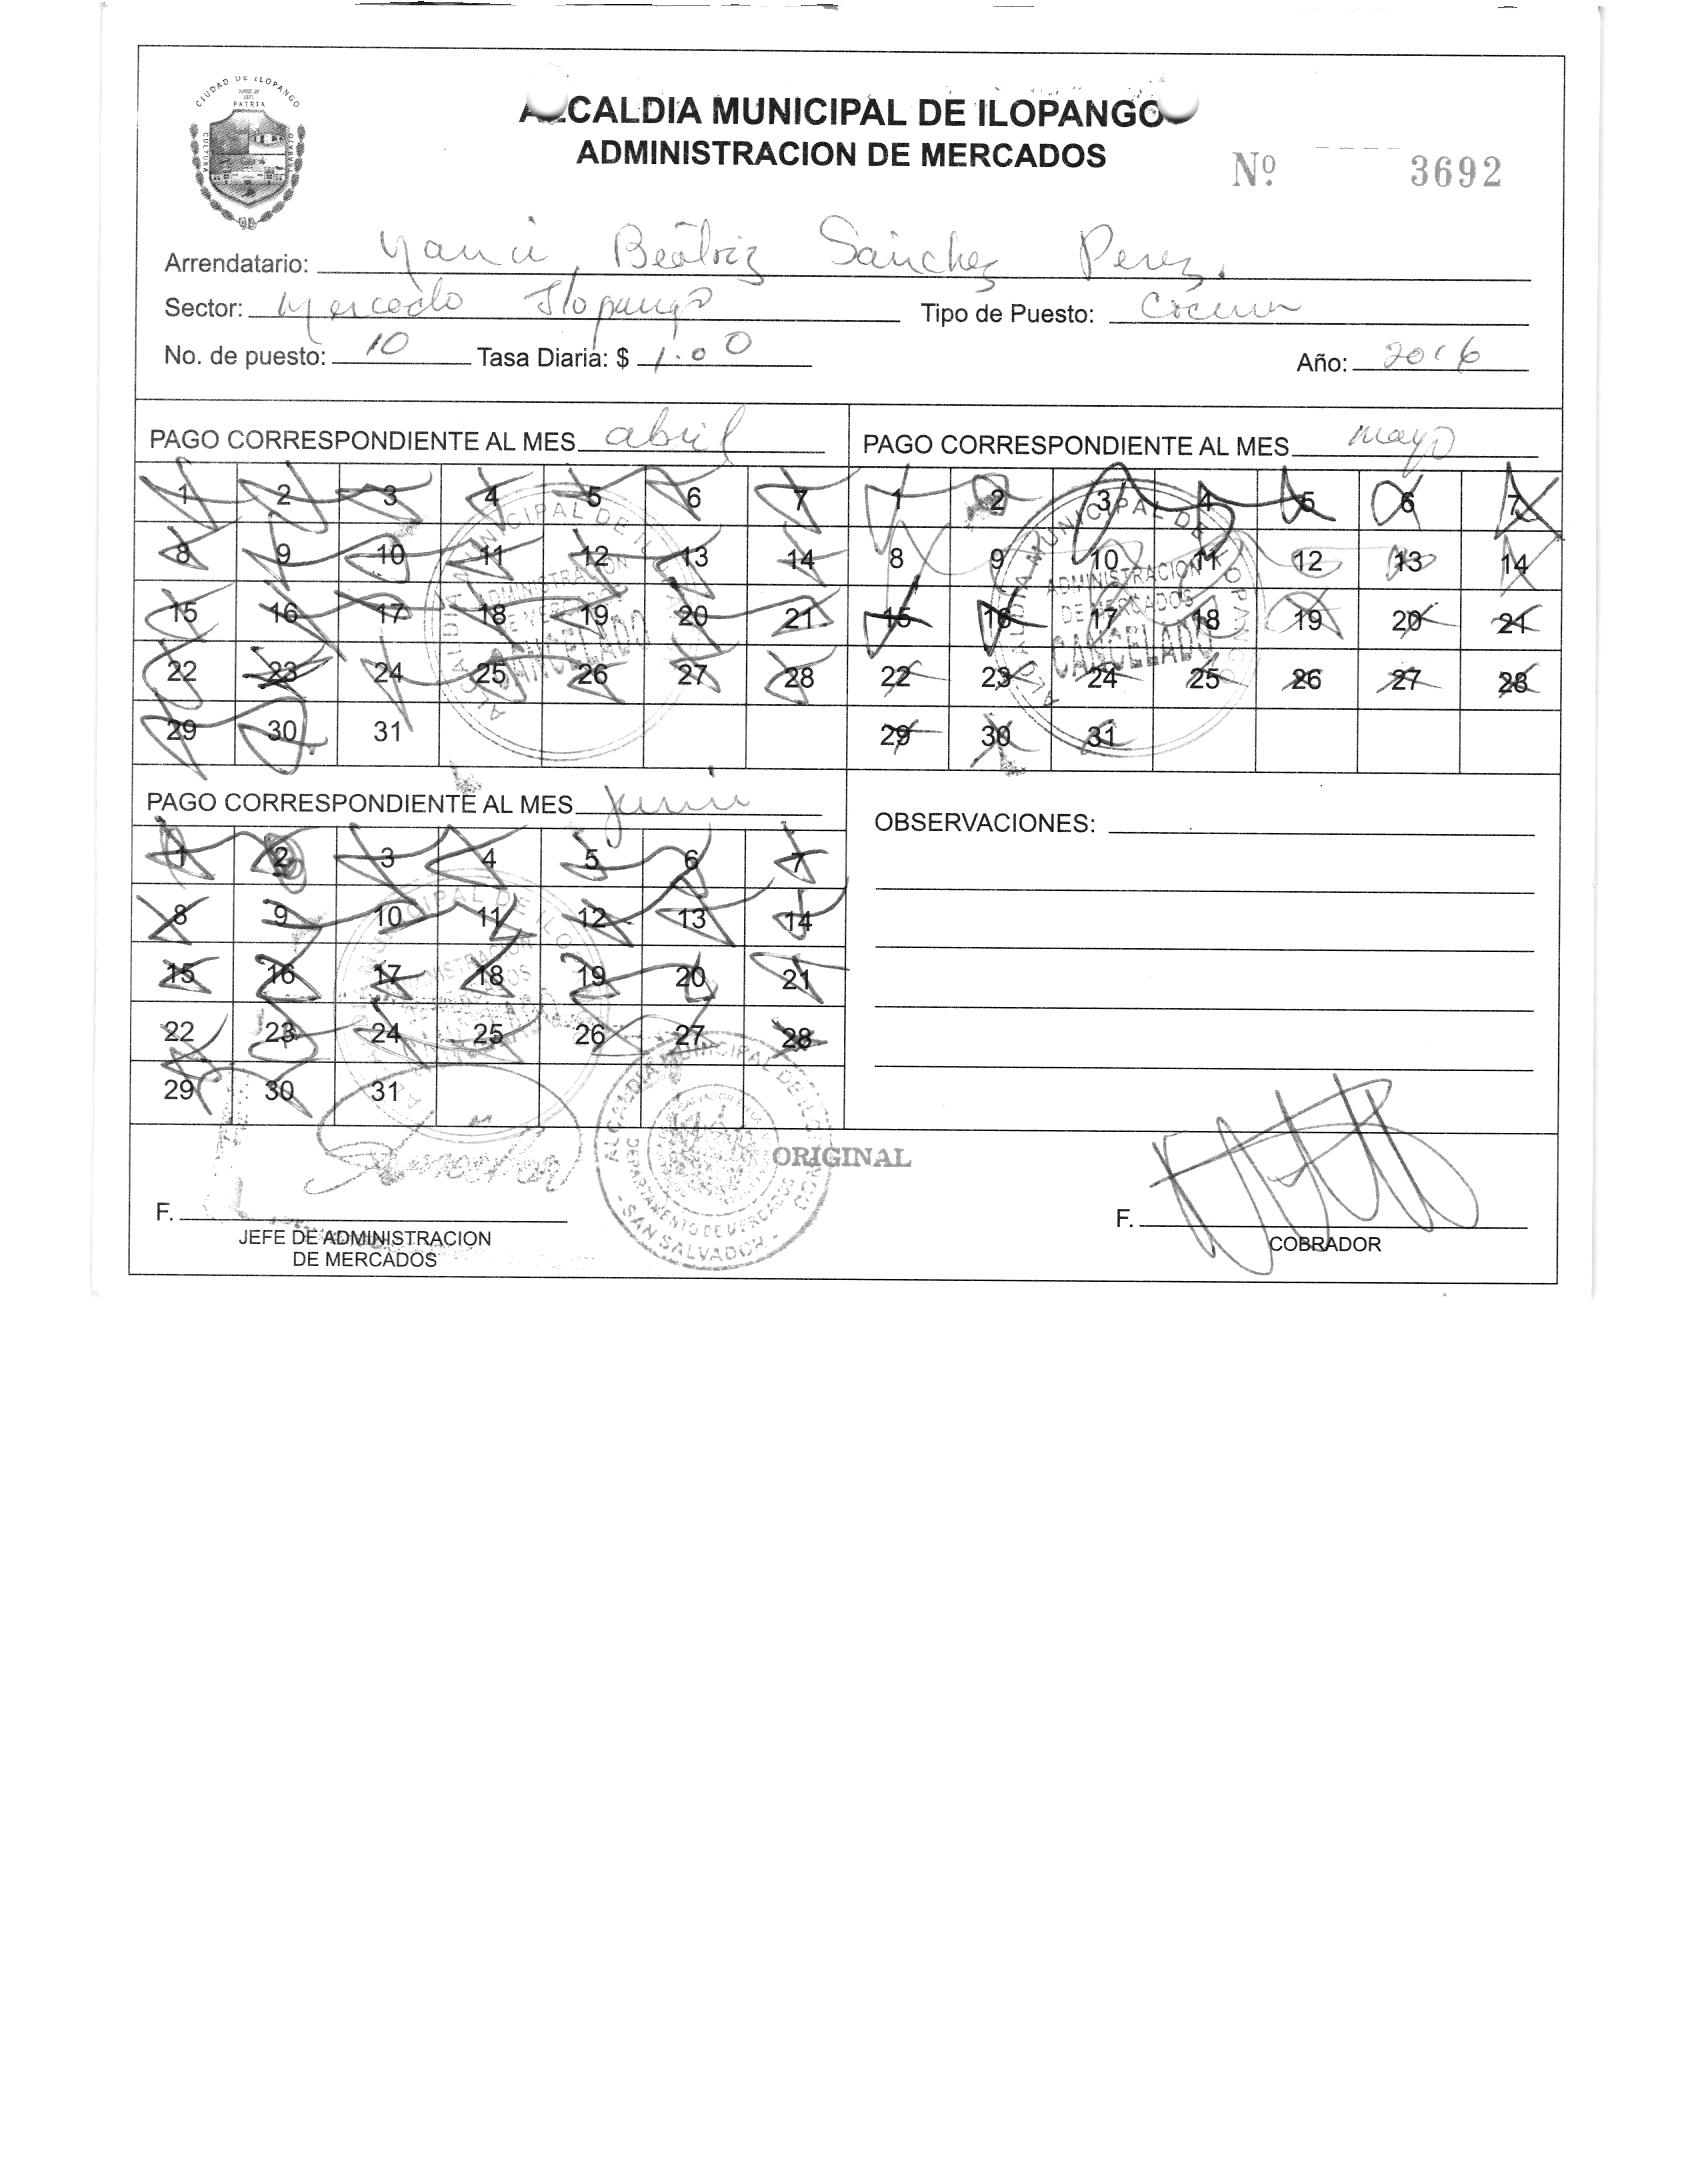 CIUDAD DE ILOPANGO
PATRIA
CULTURA
TRABAJO
ALCALDIA MUNICIPAL DE ILOPANGO
ADMINISTRACION DE MERCADOS
Nº 3692
Arrendatario: Yanci Beatriz Sánchez Perez.
Sector: Mercado Ilopango Tipo de Puesto: Cocina
No. de puesto: 10 Tasa Diaria: $ 1.00 Año: 2016
PAGO CORRESPONDIENTE AL MES abril
1 2 3 4 5 6 7
8 9 10 11 12 13 14
15 16 17 18 19 20 21
22 23 24 25 26 27 28
29 30 31
ADMINISTRACION
DE MERCADOS
CANCELADO
PAGO CORRESPONDIENTE AL MES mayo
1 2 3 4 5 6 7
8 9 10 11 12 13 14
15 16 17 18 19 20 21
22 23 24 25 26 27 28
29 30 31
ALCALDIA MUNICIPAL DE ILOPANGO
ADMINISTRACION
DE MERCADOS
CANCELADO
PAGO CORRESPONDIENTE AL MES junio
1 2 3 4 5 6 7
8 9 10 11 12 13 14
15 16 17 18 19 20 21
22 23 24 25 26 27 28
29 30 31
OBSERVACIONES:
ALCALDIA MUNICIPAL DE ILOPANGO
DEPARTAMENTO DE MERCADOS
- SAN SALVADOR -
ORIGINAL
F.
JEFE DE ADMINISTRACION
DE MERCADOS
F.
COBRADOR